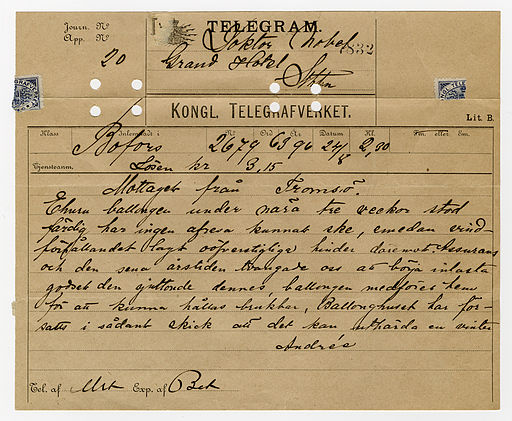 Journ. Nº
App. Nº
20
TELEGRAM.
Doktor Nobel
832
Grand Hotel
Sthlm
KONGL. TELEGRAFVERKET.
Lit. B.
Klass
Inlemnadt i
Nº
Ord
År
Datum
Kl.
Fm. eller Em.
Bofors 2679 63 96 24/8 2,30
Tjensteanm.
Lösen kr 3,15
Mottaget från Tromsö.
Ehuru ballongen under nära tre veckor stod
färdig har ingen afresa kunnat ske, emedan vind-
förhållandet lagt oöfverstiglige hinder däremot. Assurans
och den sena årstiden tvungade oss att börja inlasta
godset den sjuttonde dennes ballongen medföres hem
för att kunna hållas brukbar, Ballonghuset har för-
satts i sådant skick att det kan uthärda en vinter
Andrée
Tel. af
Exp. af